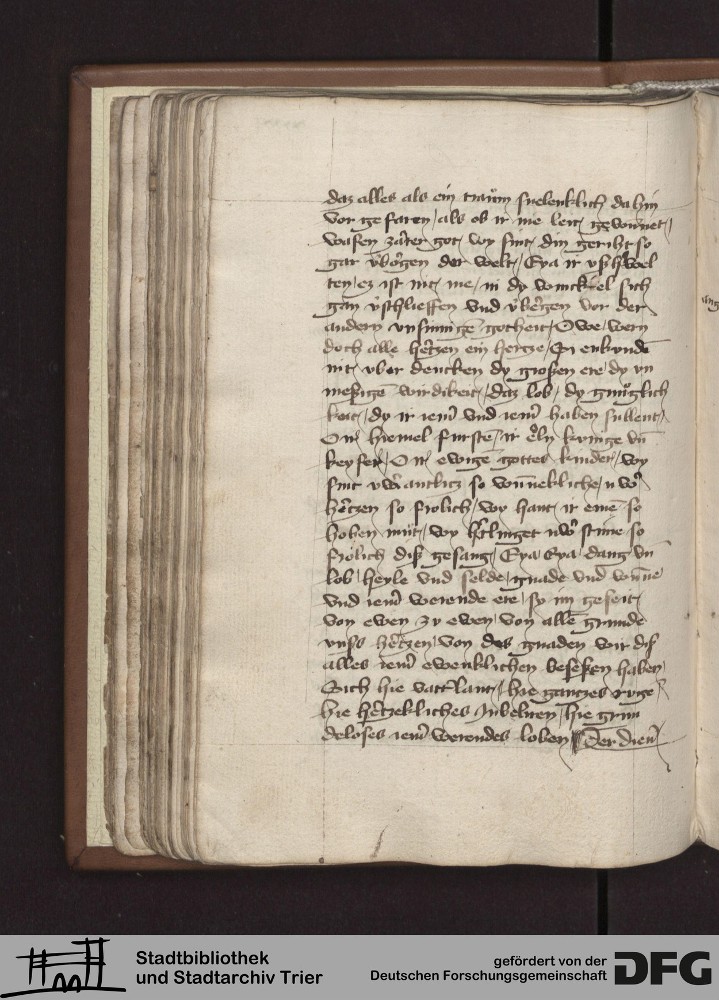 daz alles als ein traüm snelenklich da hin
vor gefaren / als ob ir nie leit gewünnet /
wafen zarter got / wy sint din geriht so
gar v̈borgen der welt / Eya ir vßherwel
ten / ez ist nit me / in dy winckel sich
gan v̈schlieffen vnd v̈bergen vor der
andern vnsinnigē gotheit / Owe / wern
doch alle hertzen ein hertze / Si enkundē
nit vber dencken dy großen ere / dy vn
meßigē wirdikeit / daz lob / dy gmüglich
keit / dy ir iem̄ vnd iem̄ haben sullent /
O ir hiemel furstē / ir eln kvinge vn̄
keyser / O ir ewigē gottes kinder / wy
sint vwer antlitz so wunnekliche / uwer
hertzen so frolich / wy hant ir einē so
hohen müt / wy hrlinget uwer stime so
frölich diß gesang / Eya Eya dang vn̄
lob / heyle vnd selde / gnade vnd wunne
vnd iem̄ werende ere / sy im geseit
von ewen zu ewen / von allē grunde
vnss hertzen / von des gnaden wir dis
alles iem̄ ewenklichen beseßen haben
Sich hie vatterlant / hie gantzes ruge
hie hertzekliches Jubelieren / hie grün
deloses iem̄ werendes loben / Der dien̄
ang
Stadtbibliothek
und Stadtarchiv Trier
gefördert von der
Deutschen Forschungsgemeinschaft
DFG